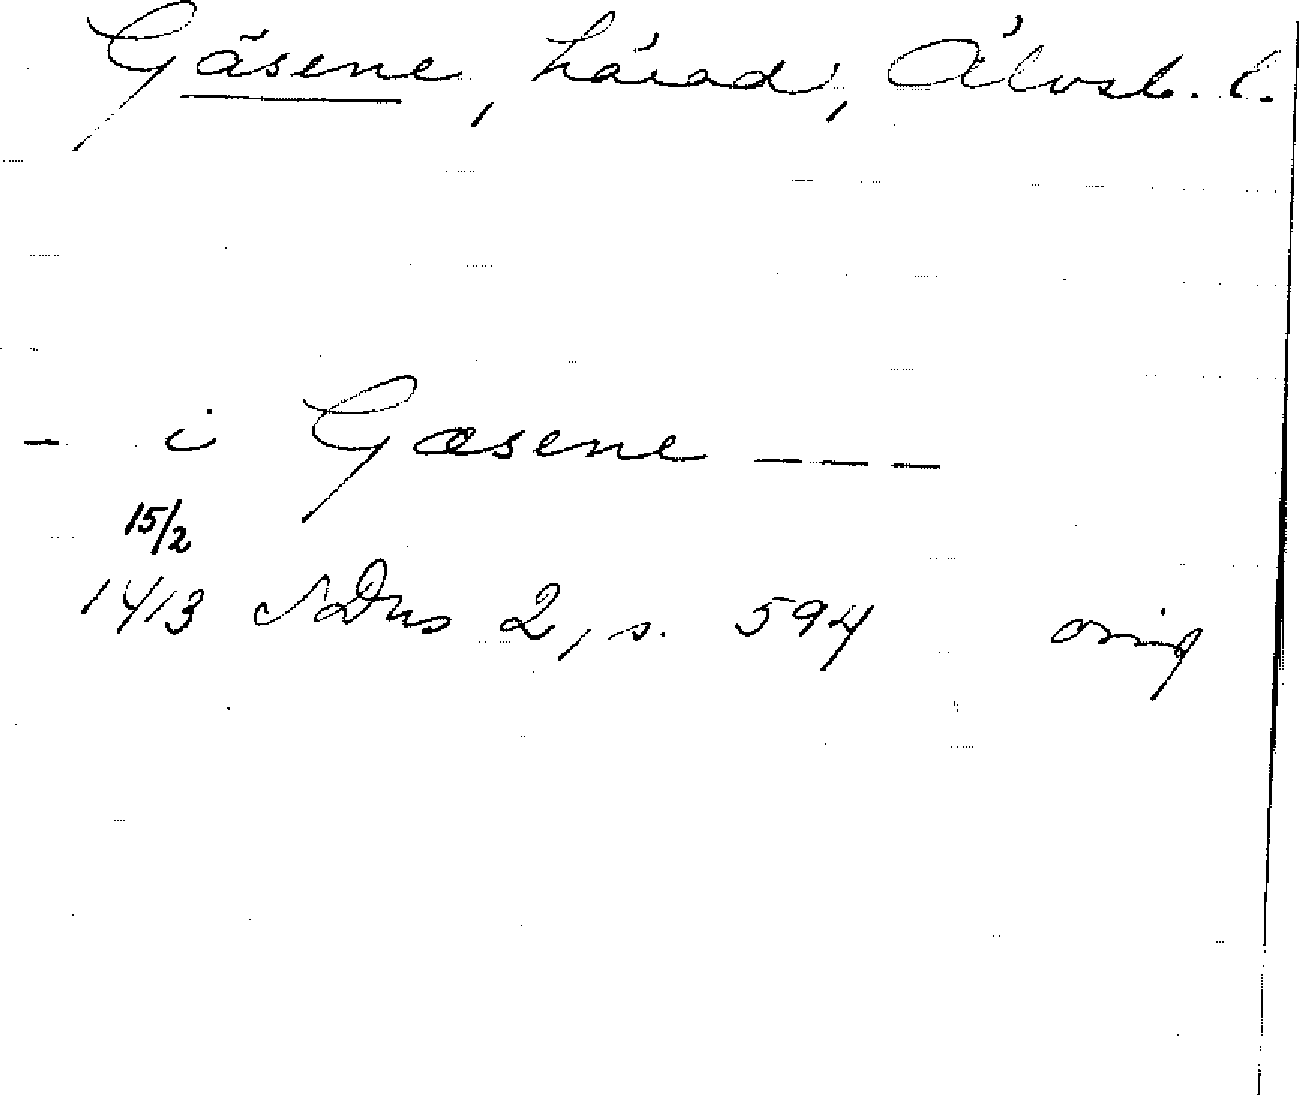 Gäsene, härad, Älvsb. l.
- i Gæsene - - -
15/2
1413 SDns 2, s. 594 orig